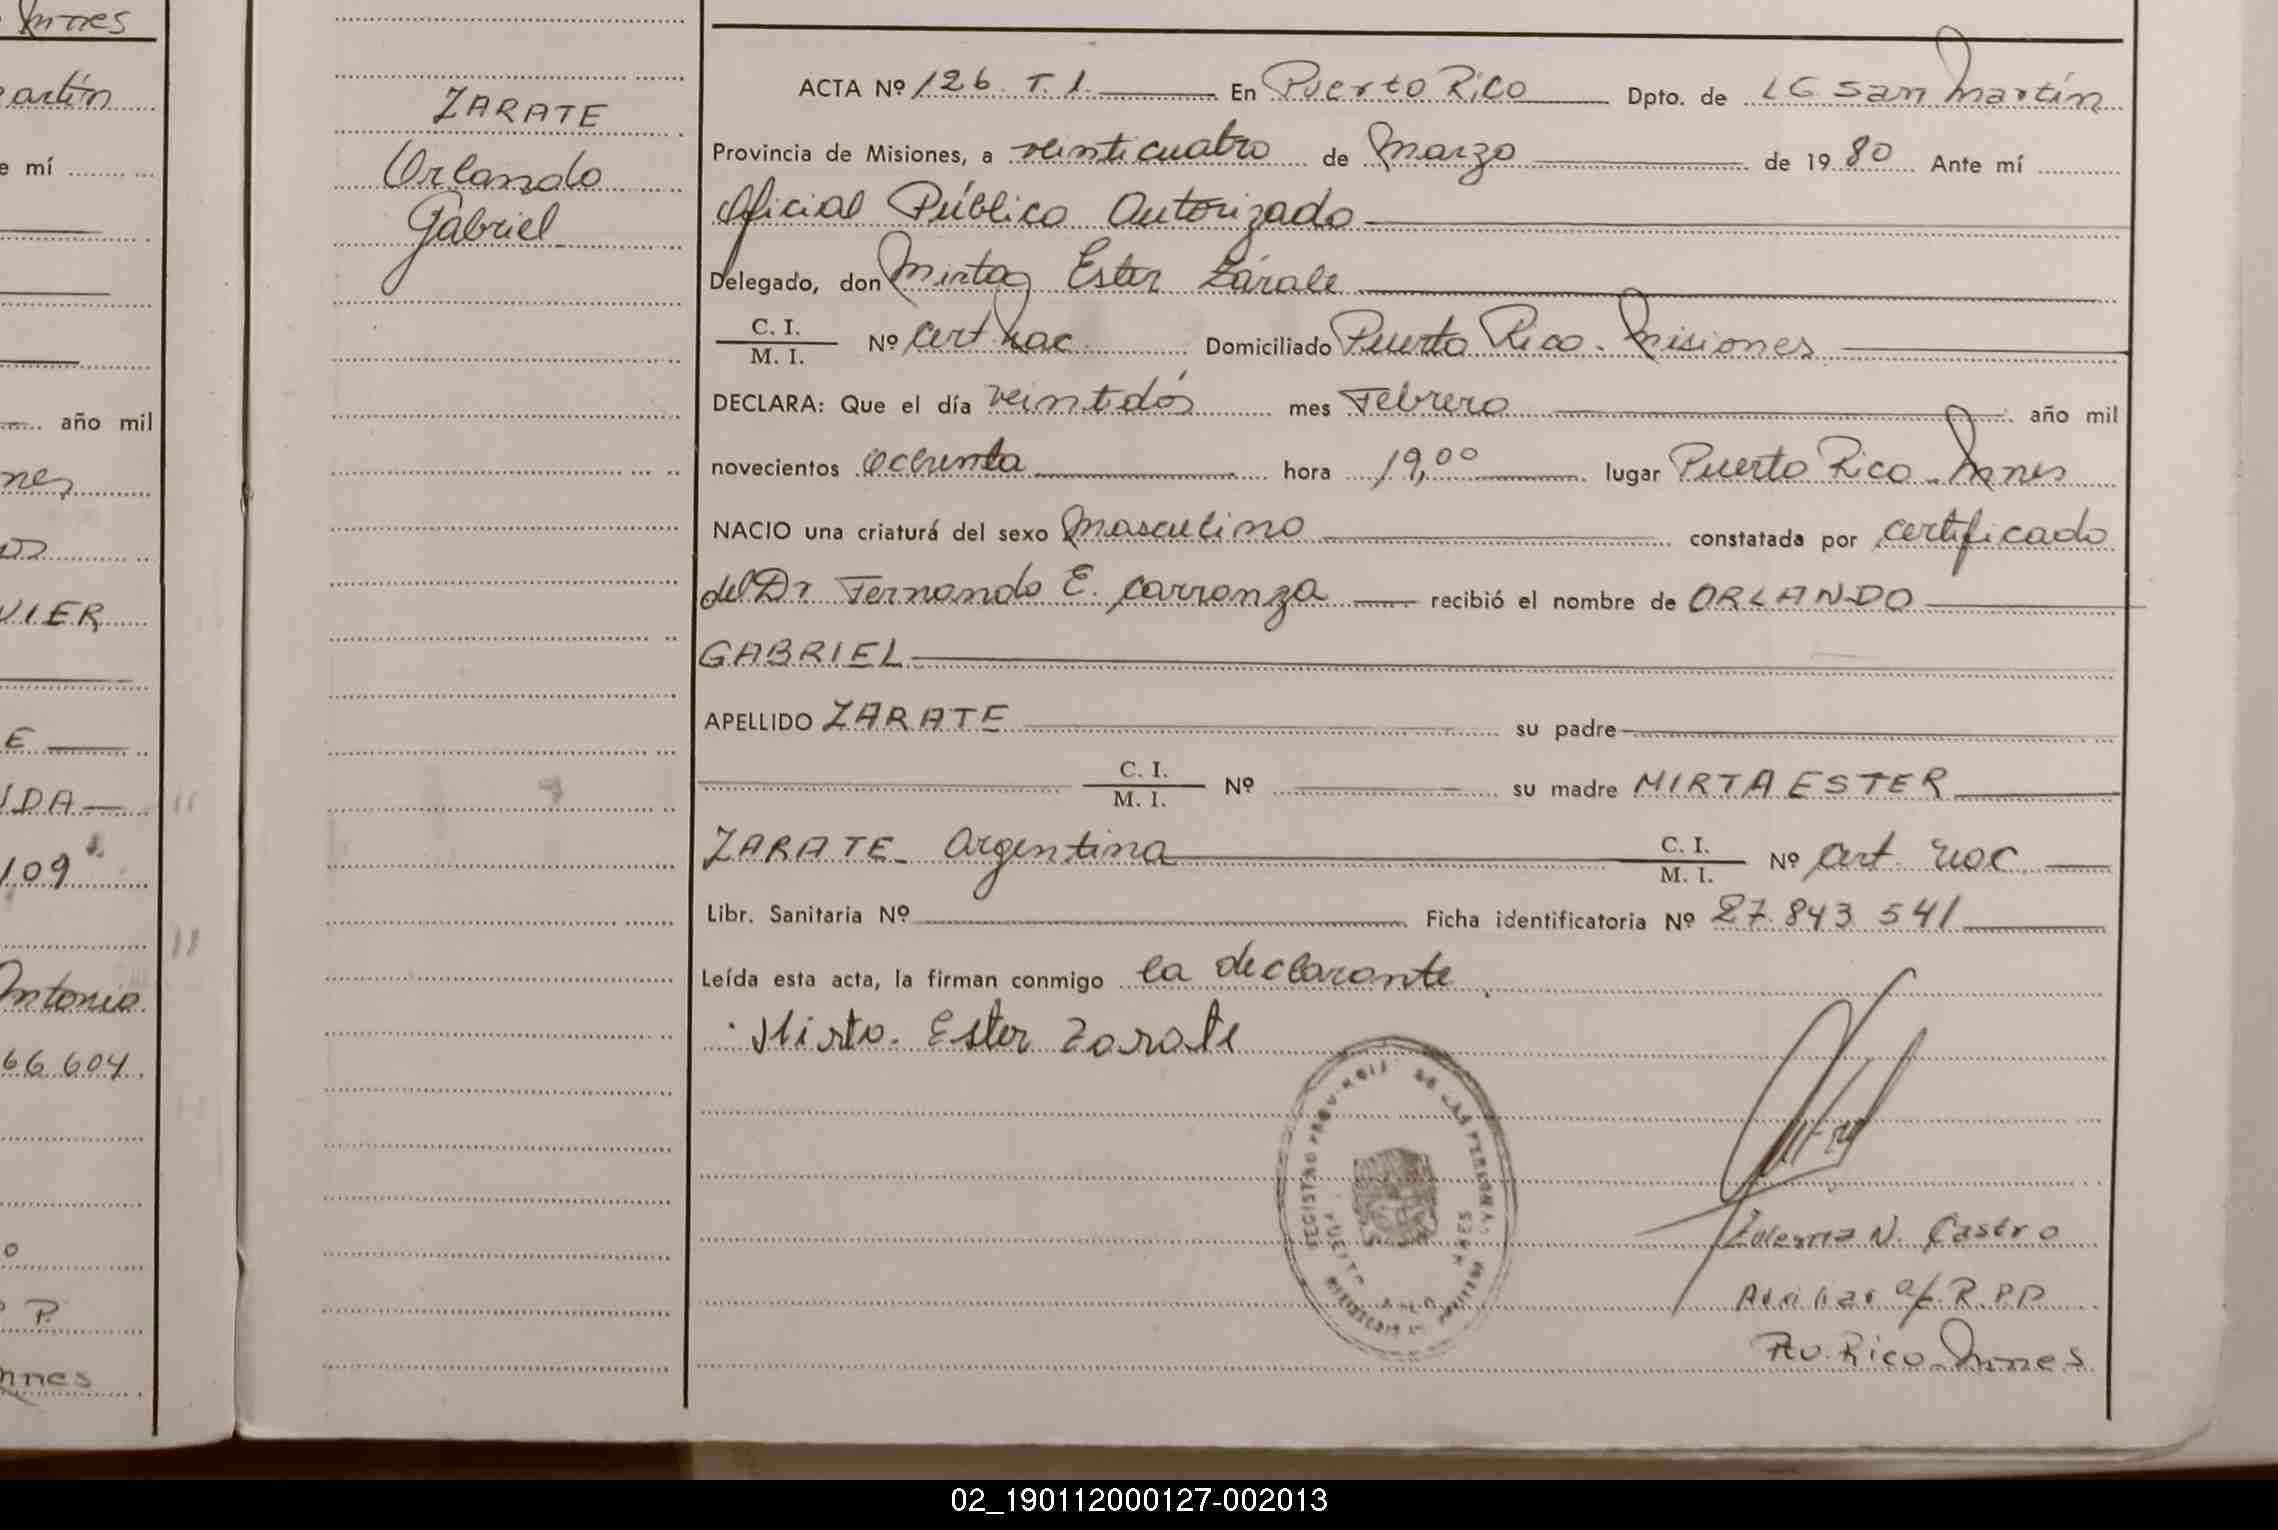 Mnes
artín
e mí
año mil
nes
VIER
E
IDA
109
Antonia
66 604
o
P.
nnes
ZARATE
Orlando
Gabriel
ACTA Nº 126 T. 1. En Puerto Rico Dpto. de LG San Martín
Provincia de Misiones, a veinticuatro de Marzo de 1980 Ante mí
Oficial Público Autorizado
Delegado, don Mirta Ester Zárate
C. I.
M. I. Nº Cert Nac Domiciliado Puerto Rico. Misiones
DECLARA: Que el día veintidós mes Febrero año mil
novecientos ochenta hora 19,00 lugar Puerto Rico. Mnes
NACIO una criatura del sexo Masculino constatada por certificado
del Dr Fernando E. Carranza recibió el nombre de ORLANDO
GABRIEL
APELLIDO ZARATE su padre
C. I.
M. I. Nº su madre MIRTA ESTER
ZARATE Argentina C. I.
M. I. Nº Cert. nac
Libr. Sanitaria Nº Ficha identificatoria Nº 27.843 541
Leída esta acta, la firman conmigo la declarante
Mirta. Ester Zarate
REGISTRO PROVINCIAL DE LAS PERSONAS
PUERTO RICO
Zulema N. Castro
Auxiliar a/c. R.P.P
Pto. Rico. Mnes
02_190112000127-002013